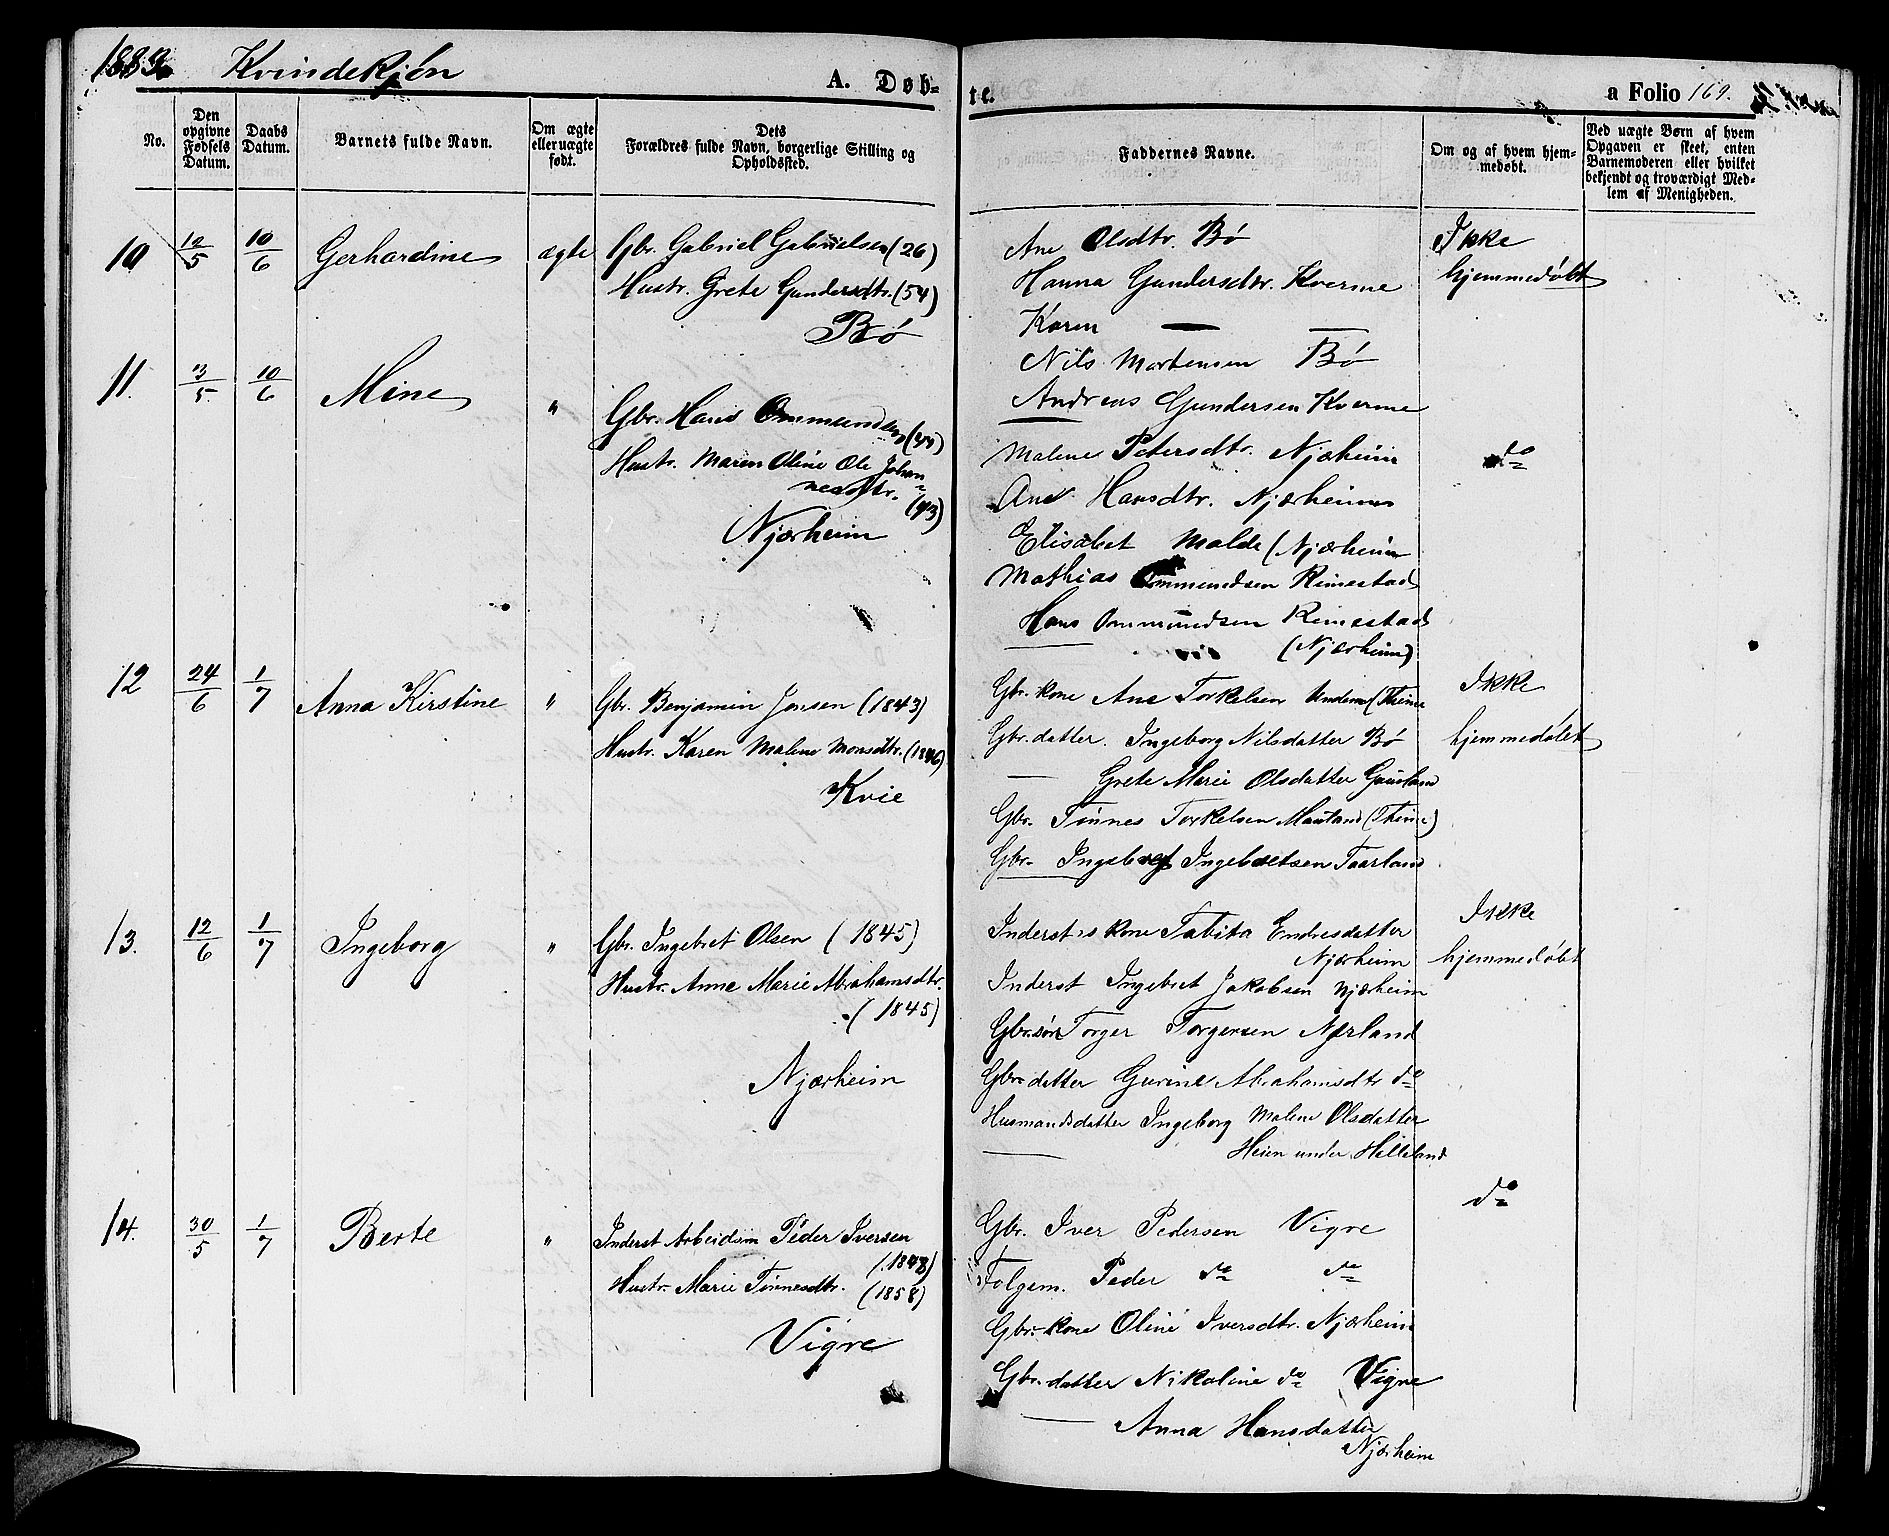 1883 Kvindekjøn
A. Døb-
te.
a Folio 169.
No.
Den opgivne Fødsels Datum.
Daabs Datum.
Barnets fulde Navn.
Om ægte eller uægte født.
Dets Forældres fulde Navn, borgerlige Stilling og Opholdssted.
Faddernes Navne.
Om og af hvem hjemmedøbt.
Ved uægte Børn af hvem Opgaven er skeet, enten Barnemoderen eller hvilket bekjendt og troværdigt Medlem af Menigheden.
10 12/5 10/6 Gerhardine ægte Gbr. Gabriel Gabrielsen (26)
Hustr. Grete Gundersdtr. (54)
Bø
Ane Olsdtr. Bø
Hanna Gundersdtr. Kverme
Karen — —
Nils Mortensen Bø
Andreas Gundersen Kverme
Ikke
hjemmedøbt
11. 3/5 10/6 Mine " Gbr. Hans Ommundsen (44)
Hustr. Maren Oline Ole Johan-
nesdtr. (43)
Njærheim
Malene Petersdtr. Njærheim
Ane Hansdtr. Njærheim
Elisabet Malde (Njærheim
Mathias Ommundsen Rimestad
Hans Ommundsen Rimestad
(Njærheim)
do
12 24/6 1/7 Anna Kirstine " Gbr. Benjamin Jonsen (1843)
Hustr. Karen Malene Monsdtr. (1846)
Kvie
Gbr. kone Ane Torkelsen Undem (Thime
Gbr. datter. Ingeborg Nilsdatter Bø
— Grete Marie Olsdatter Gausland
Gbr. Tønnes Torkelsen Mauland (Thime)
Gbr. Ingebret Ingebretsen Taarland
Ikke
hjemmedøbt
13. 12/6 1/7 Ingeborg " Gbr. Ingebret Olsen (1845)
Hustr. Anne Marie Abrahamsdtr.
(1845)
Njærheim
Inderst's kone Tabita Endresdatter
Njærheim
Inderst Ingebret Jakobsen Njærheim
Gbr. søn Torger Torgersen Nærland
Gbr. datter Gurine Abrahamsdtr do
Husmandsdatter Ingeborg Malene Olsdatter
Heien under Helleland
Ikke
hjemmedøbt
14. 30/5 1/7 Berte " Inderst Arbeidsm Peder Iversen
(1848)
Hustr. Marie Tønnesdtr. (1858)
Vigre
Gbr. Iver Pedersen Vigre
Folgem. Peder do do
Gbr. kone Oline Iversdtr. Njærheim
Gbr. datter Nikoline do Vigre
— Anna Hansdatter
Njærheim
do